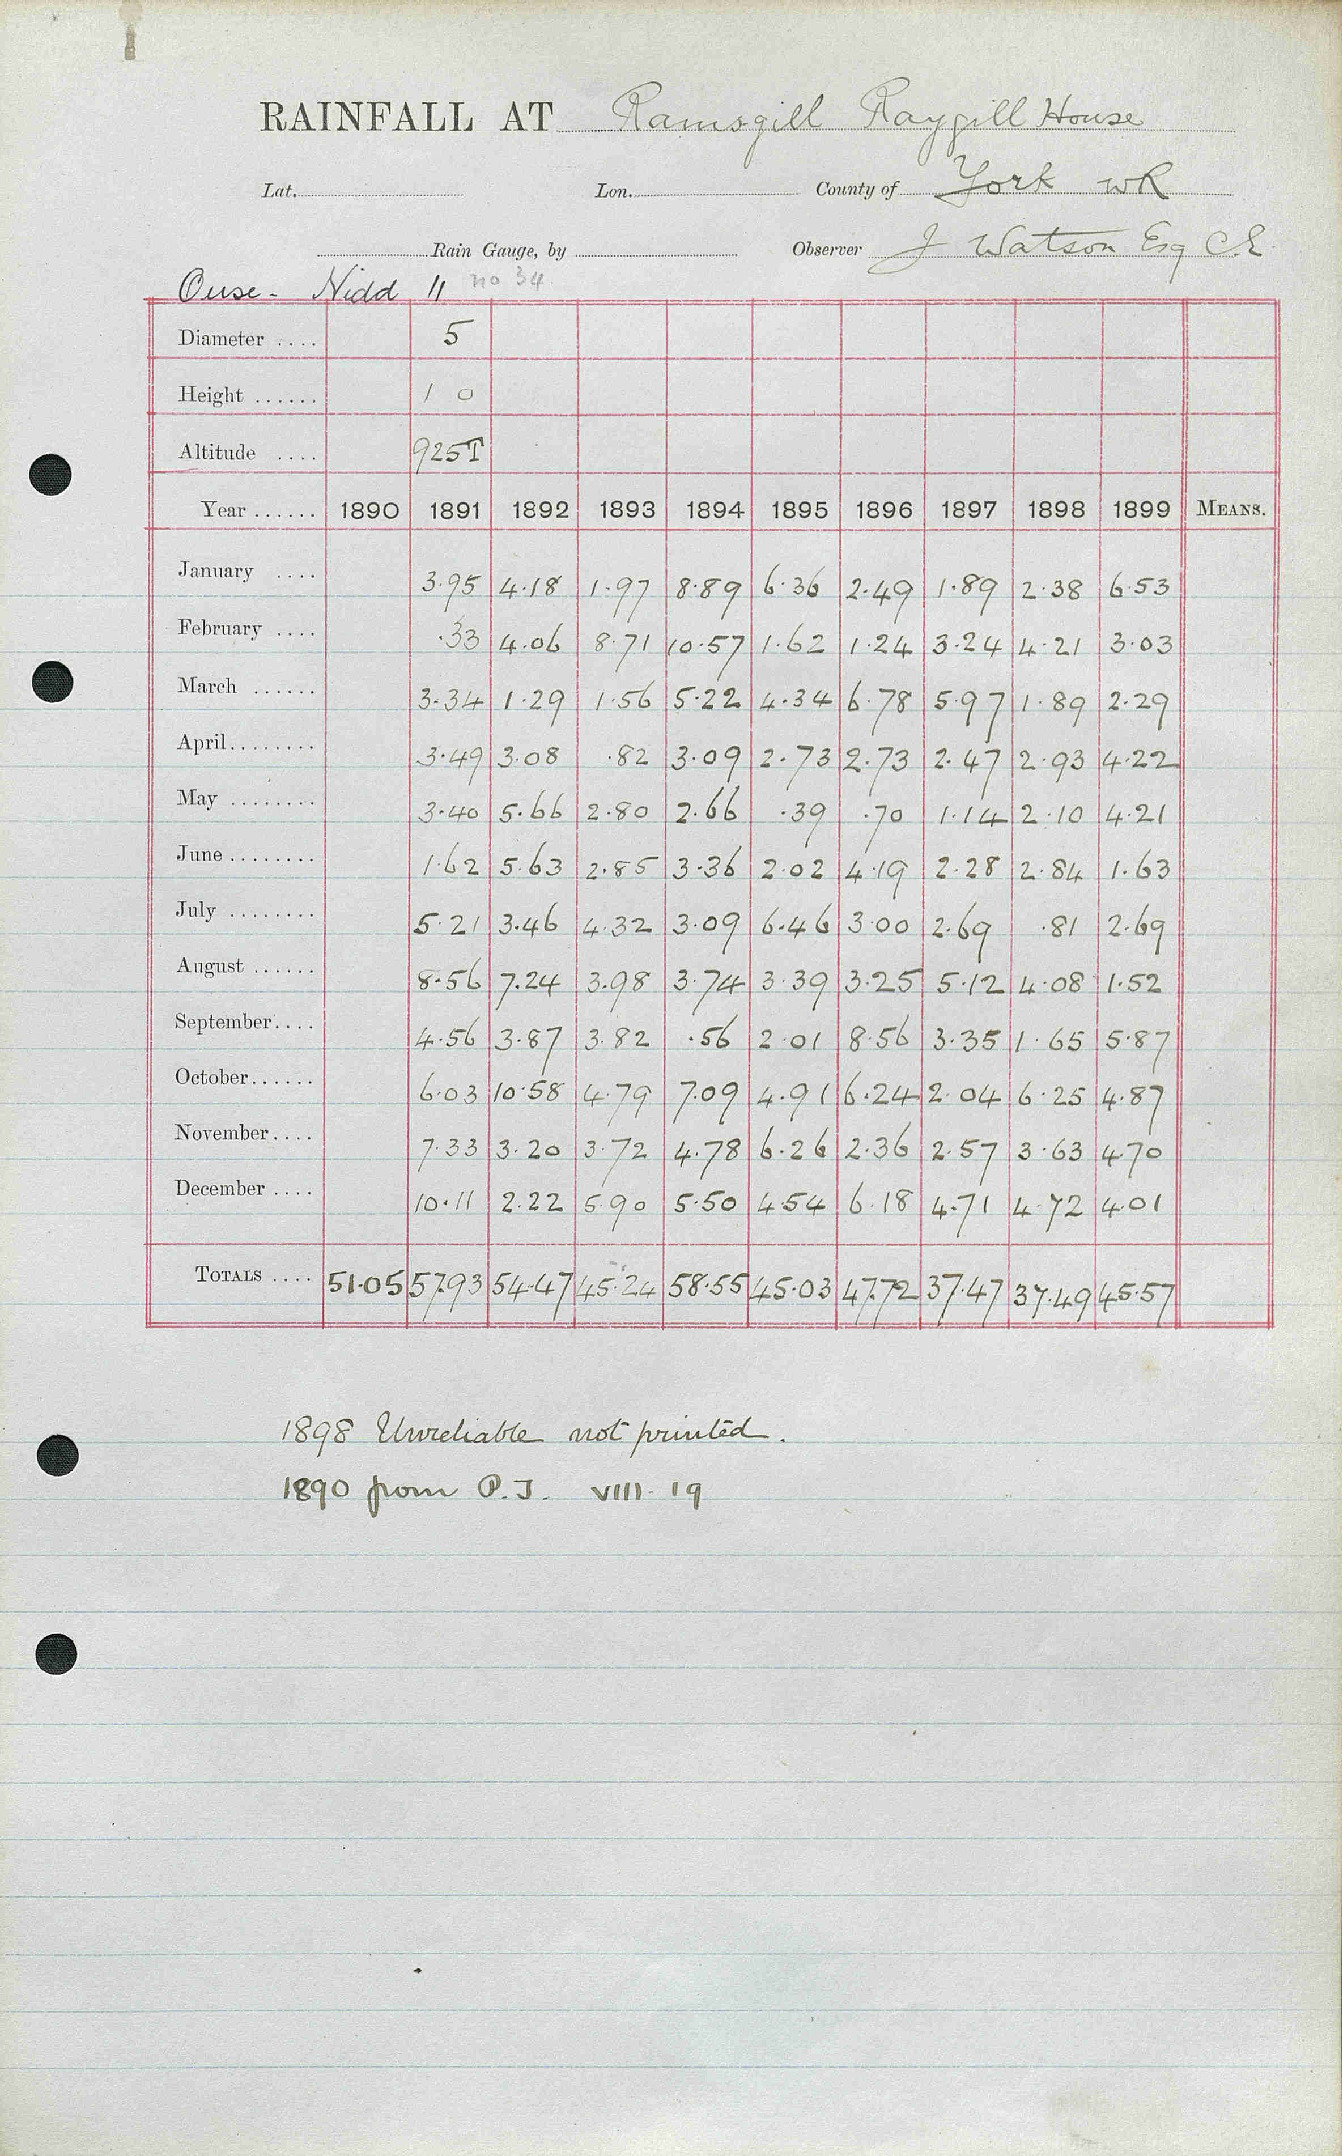 RAINFALL AT Ramsgill Raygill House
Lat. Lon. County of York WR
Rain Gauge, by Observer J Watson Esq C.E.
Ouse - Nidd 11 no 34
Diameter .... 5
Height ...... 1 0
Altitude .... 925T
Year ...... 1890 1891 1892 1893 1894 1895 1896 1897 1898 1899 MEANS.
January .... 3.95 4.18 1.97 8.89 6.36 2.49 1.89 2.38 6.53
February .... .33 4.06 8.71 10.57 1.62 1.24 3.24 4.21 3.03
March ...... 3.34 1.29 1.56 5.22 4.34 6.78 5.97 1.89 2.29
April........ 3.49 3.08 .82 3.09 2.73 2.73 2.47 2.93 4.22
May ........ 3.40 5.66 2.80 2.66 .39 .70 1.14 2.10 4.21
June ........ 1.62 5.63 2.85 3.36 2.02 4.19 2.28 2.84 1.63
July ........ 5.21 3.46 4.32 3.09 6.46 3.00 2.69 .81 2.69
August ...... 8.56 7.24 3.98 3.74 3.39 3.25 5.12 4.08 1.52
September.... 4.56 3.87 3.82 .56 2.01 8.56 3.35 1.65 5.87
October...... 6.03 10.58 4.79 7.09 4.91 6.24 2.04 6.25 4.87
November.... 7.33 3.20 3.72 4.78 6.26 2.36 2.57 3.63 4.70
December .... 10.11 2.22 5.90 5.50 4.54 6.18 4.71 4.72 4.01
TOTALS .... 51.05 57.93 54.47 45.24 58.55 45.03 47.72 37.47 37.49 45.57
1898 Unreliable not printed.
1890 from P.J. VIII. 19